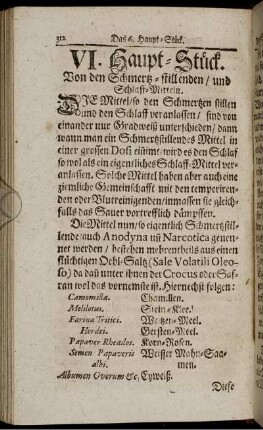 312 Das 6. Haupt-Stück.
VI. Haupt-Stück.
Von den Schmertz-stillenden/ und
Schlaff-Mitteln.
DIE Mittel/ so den Schmertzen stillen
und den Schlaff veranlassen/ sind von
einander nur Gradweiß unterschieden/ dann
wann man ein Schmertzstillendes Mittel in
einer grossen Dosi nimmt/ wird es den Schlaf
so wol als ein eigentliches Schlaff-Mittel ver-
anlassen. Solche Mittel haben aber auch eine
ziemliche Gemeinschafft mit den temperiren-
den oder Blutreinigenden/ inmassen sie gleich-
falls das Sauer vortrefflich dämpffen.
Die Mittel nun/ so eigentlich Schmertzstil-
lende/ auch Anodyna uñ Narcotica genen-
net werden/ bestehen mehrentheils aus einen
flüchtigen Oehl-Saltz (Sale Volatili Oleo-
so) da dañ unter ihnen det Crocus oder Saf-
ran wol das vornemste ist. Hiernechst folgen:
Camomilla. Chamillen.
Melilotus. Stein-Klee.
Farina Tritici. Weitzen-Meel.
Hordei. Gersten-Meel.
Papaver Rheados. Korn-Rosen.
Semen Papaveris Weisser Mahn-Saa-
albi. men.
Albumen Ovorum &c. Eyweiß.
Diese